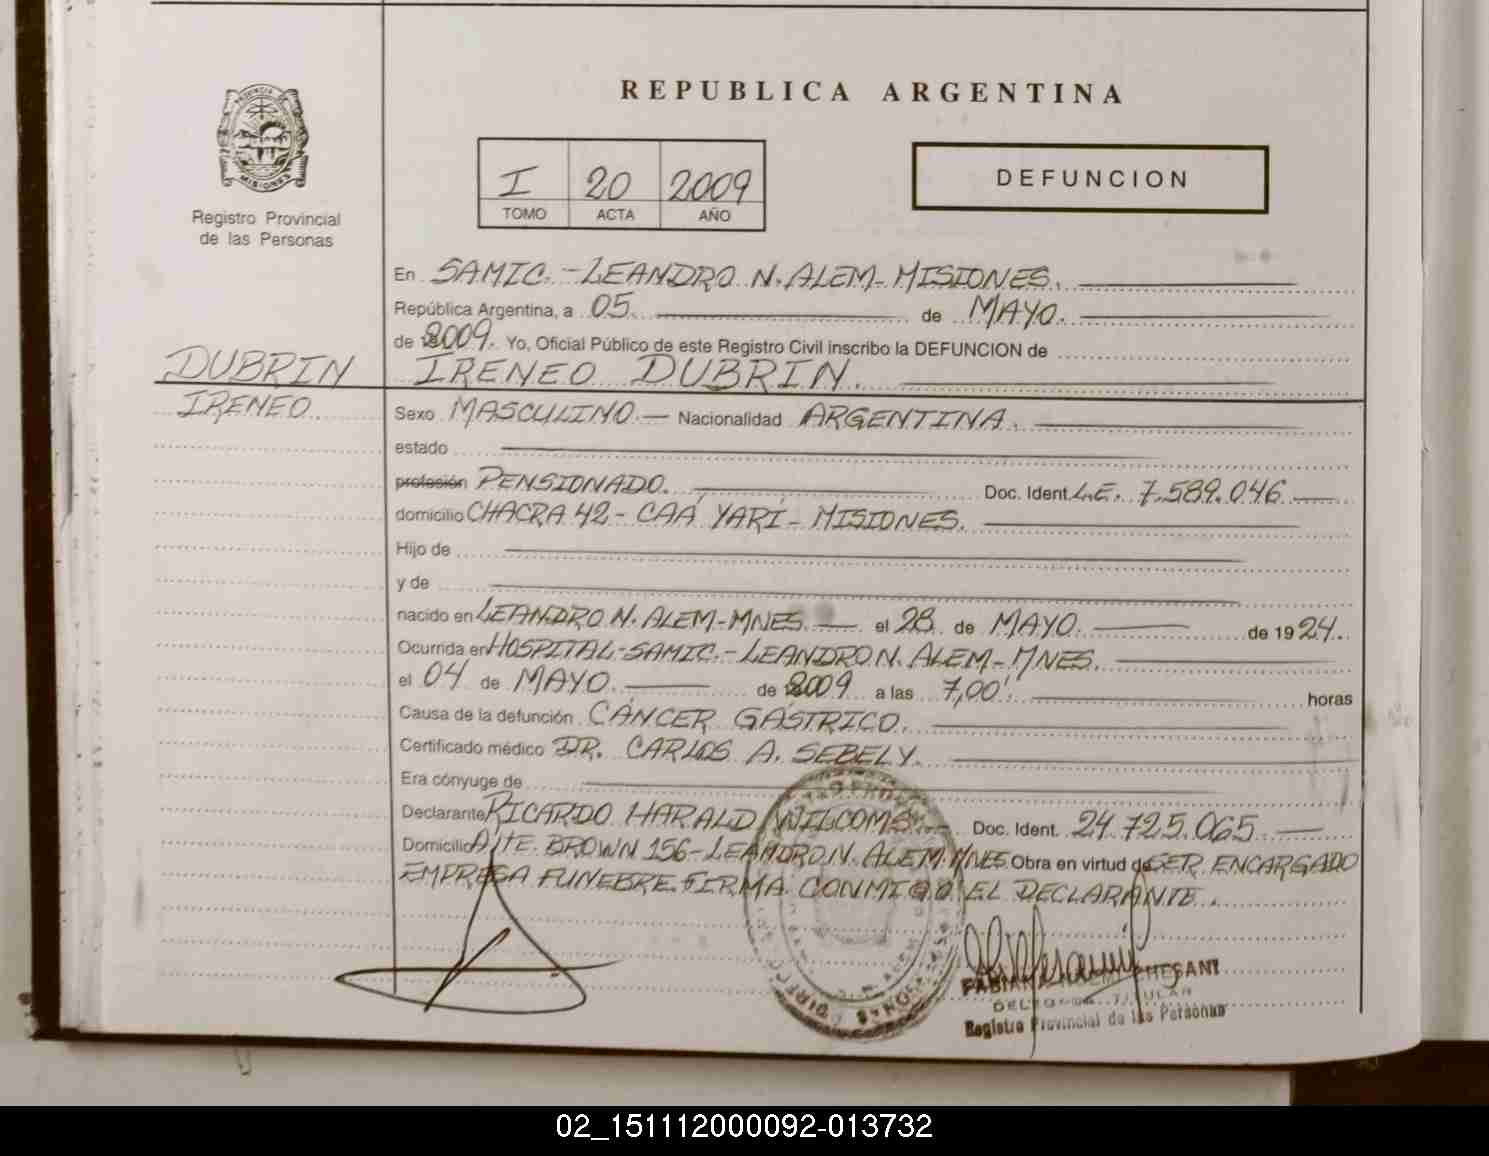 REPUBLICA ARGENTINA
PROVINCIA DE
MISIONES
Registro Provincial
de las Personas
I 20 2009
TOMO ACTA AÑO
DEFUNCION
En SAMIC.-LEANDRO N. ALEM-MISIONES.
República Argentina, a 05. de MAYO.
de 2009. Yo, Oficial Público de este Registro Civil inscribo la DEFUNCION de
DUBRIN
IRENEO
IRENEO DUBRIN.
Sexo MASCULINO.— Nacionalidad ARGENTINA.
estado
profesión PENSIONADO. Doc. Ident. L.E. 7.589.046
domicilio CHACRA 42- CAÁ YARÍ- MISIONES.
Hijo de
y de
nacido en LEANDRO N. ALEM-MNES. el 28 de MAYO. de 1924.
Ocurrida en HOSPITAL-SAMIC.-LEANDRO N. ALEM-MNES.
el 04 de MAYO. de 2009 a las 7,00'. horas
Causa de la defunción CÁNCER GÁSTRICO.
Certificado médico DR. CARLOS A. SEBELY.
Era cónyuge de
Declarante RICARDO HARALD Doc. Ident. 24.725.065
Domicilio A/TE. BROWN 156-LEANDRO N. ALEM.MNES. Obra en virtud de SER ENCARGADO
EMPRESA FUNEBRE.FIRMA CONMIGO EL DECLARANTE.
TITULAR
Registro Provincial de las Personas
02_151112000092-013732